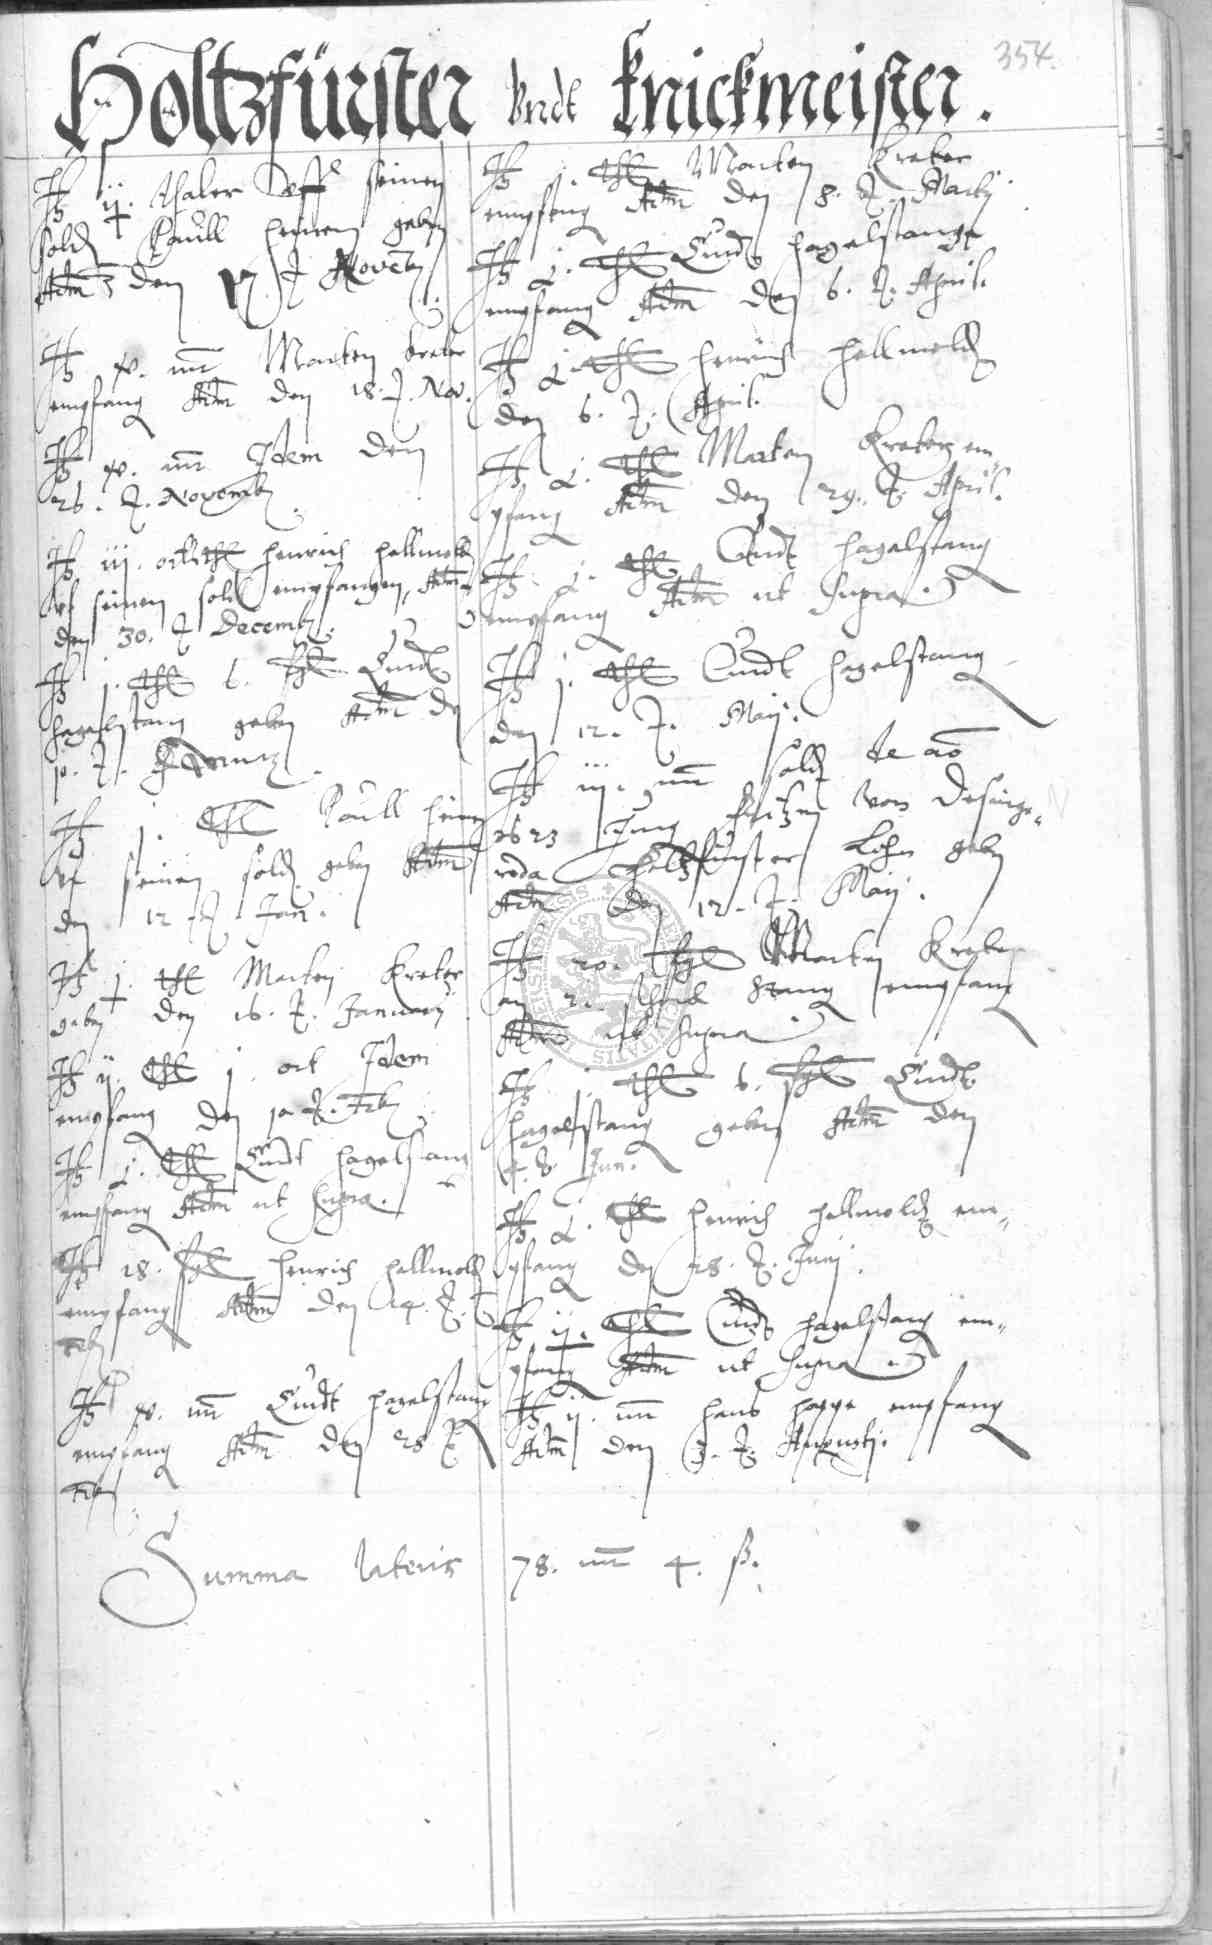 354.
Holtzfürster vndt Knickmeister.
It ij. thaler vff seinen
soldt Paull heinen geben
Actum den 17. 9 Novemb
It xv. mr Marten kreter
empfang Actum den 18. 9. Nov.
It xv. mr Idem den
26. 9. Novemb
It iij. ort thl henrich hellmoldt
vf seinen soldt empfangen, Actum
den 30. 9 Decemb
It j. thl 6. ßl Curdt
hagelstang geben Actum den
10. 9. January
It j. thl Paull heinen
vf seinen soldt geben Actum
den 12. 9. Jan.
It j. thl Marten Kreter
geben den 16. 9. January
It ij. thl j. ort Idem
empfang den 10. 9. Feb
It j. thl Curdt hagelstang
empfang Actum ut supra.
It 18. ßl henrich hellmoldt
empfang Actum den 14. 9.
Feb
It xv. mr Curdt hagelstang
empfang Actum den 28 9
Feb
It j. thl Marten Kreter
empfang Actum den 8. 9. Martij
It j. thl Curdt hagelstange
empfang Actum den 6. 9. April.
It j. thl henrich hellmoldt
den 6. 9. April.
It j. thl Marten Kreter em-
pfang Actum den 29. 9. April.
It j. thl Curdt hagelstang
empfang Actum ut supra
It j. thl Curdt hagelstang
den 12. 9. Maij.
It iij. mr soldt de ao
1623 Jung fritzen von Desinge-
roda holtzfürster Lohn geben
Actum den 12. 9. Maij.
It 20. ßl Marten Kreter
an stang empfang
Actum ut supra
It j thl 6. ßl Curdt
hagelstang geben Actum den
4. 8. Jun.
It j. thl henrich hellmoldt em-
pfang den 28. 9. Junij.
It ij. thl Curdt hagelstang em-
pfang Actum ut supra
It ij. mr hans happe empfang
Actum den 3. 9. Augusti.
Summa lateris 78. mr 4. ß.